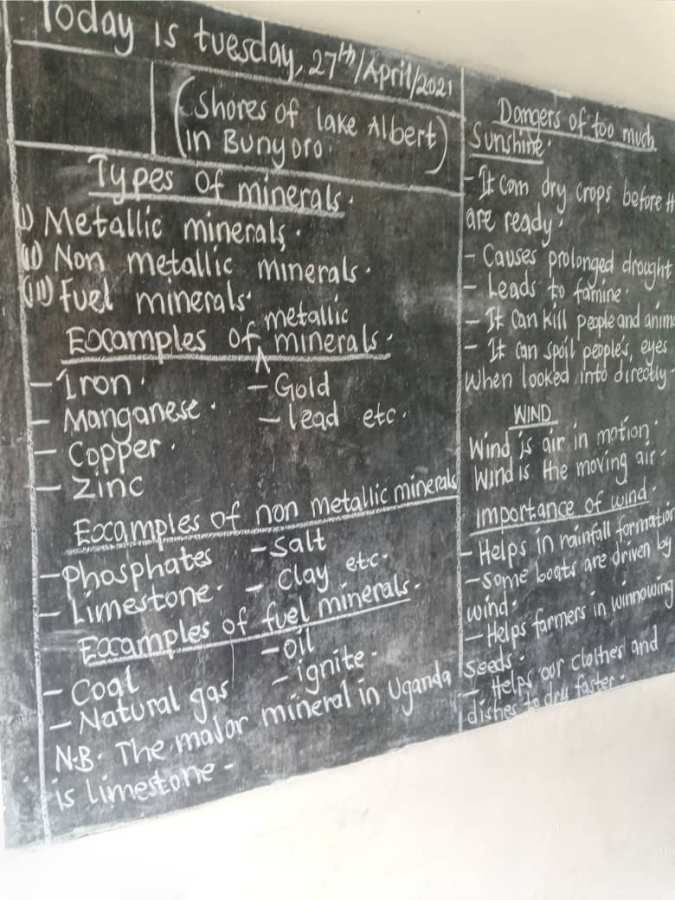 Today is tuesday, 27th/April/2021
(Shores of lake Albert)
in Bunyoro.
Types of minerals.
i) Metallic minerals.
ii) Non metallic minerals.
iii) Fuel minerals.
metallic
Examples of ^ minerals.
- Iron. - Gold
- Manganese. - lead etc.
- Copper.
- Zinc
Examples of non metallic minerals
- Phosphates - Salt
- Limestone. - Clay etc.
Examples of fuel minerals.
- Coal - oil
- Natural gas - ignite.
N.B. The major mineral in Uganda
is limestone -
Dangers of too much
Sunshine.
- It can dry crops before
are ready.
- Causes prolonged drought
- Leads to famine.
- It can kill people and anim
- It can spoil people's, eyes
When looked into directly -
WIND
Wind is air in motion.
Wind is the moving air.
importance of wind.
- Helps in rainfall formation
- Some boats are driven by
wind.
- Helps farmers in winnowing
Seeds.
- Helps our clothes and
dishes to dry faster.